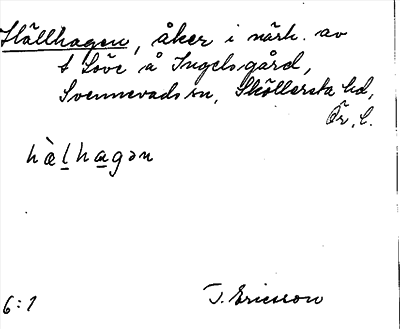 Hällhagen, åker i närh. av
t Löve å Ingelsgård,
Svennevads sn, Sköllersta hd,
Ör. l.
hàlhagən
6:1 J. Ericsson